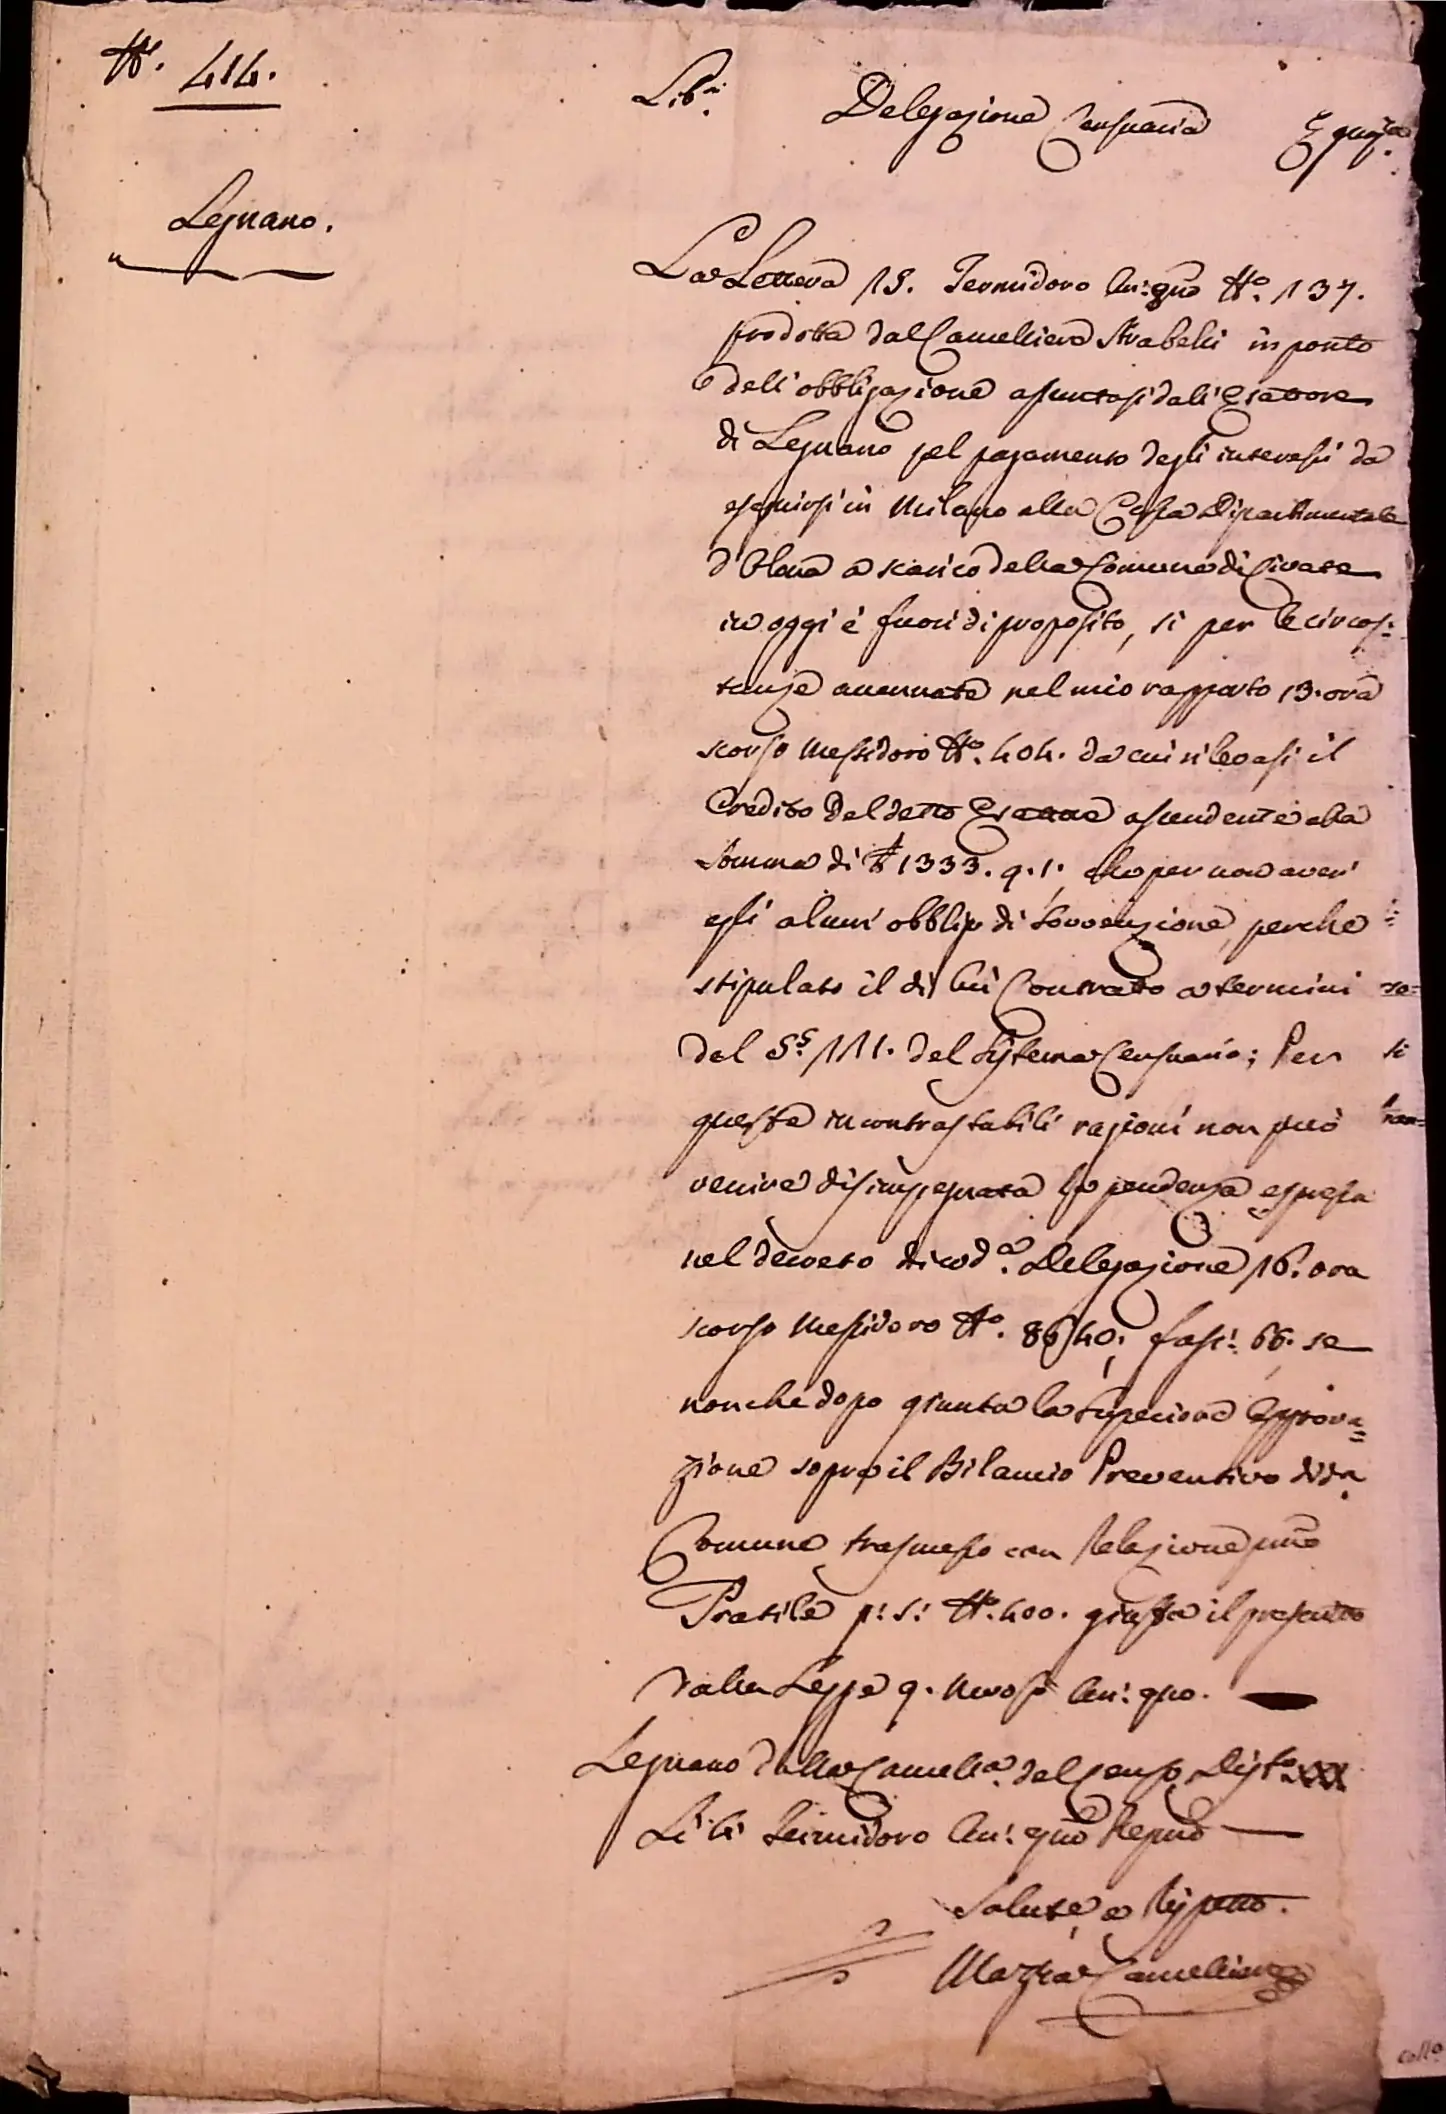 N.º 414.
Lib.tà Delegazione Censuaria Eguag.za
Legnano.
La Lettera 15. Termidoro An: qnto N.º 137.
prodotta dal Cancelliere Strabelli in punto
dell'obbligazione assuntasi dall'Esattore
di Legnano pel pagamento degli interessi da
eseguirsi in Milano alla Cassa Dipartimentale
d'Olona a scarico della Comune di Civate
in oggi è fuori di proposito, si per le circos:
tanze accennate nel mio rapporto 13. ora
scorso Messidoro N.º 404. da cui rilevasi il
Credito del detto Esattore ascendente alla
somma di £ 1333. 9. 1., che per non aver
essi alcun obbligo di sovvenzione, perche
stipulato il di lui Contratto a termini
del §.º 111. del Sistema Censuario; Per
queste incontrastabili ragioni non può
venire disimpegnata la pendenza espressa
nel decreto di cod.a Delegazione 16. ora
scorso Messidoro N.º 8640; fasc: 66. se
nonche dopo giunta la Superiore Approva=
zione sopra il Bilancio Preventivo di d.a
Comune trasmesso con Relazione pmo
Pratile p: s: N.º 400. giusta il prescritto
dalla Legge 9. Nevoso An: qno.
Legnano dalla Cancell.a del Censo Dist.o XXX
Li Termidoro An: qnto Repno
Salute, e Rispetto.
Cancelliere